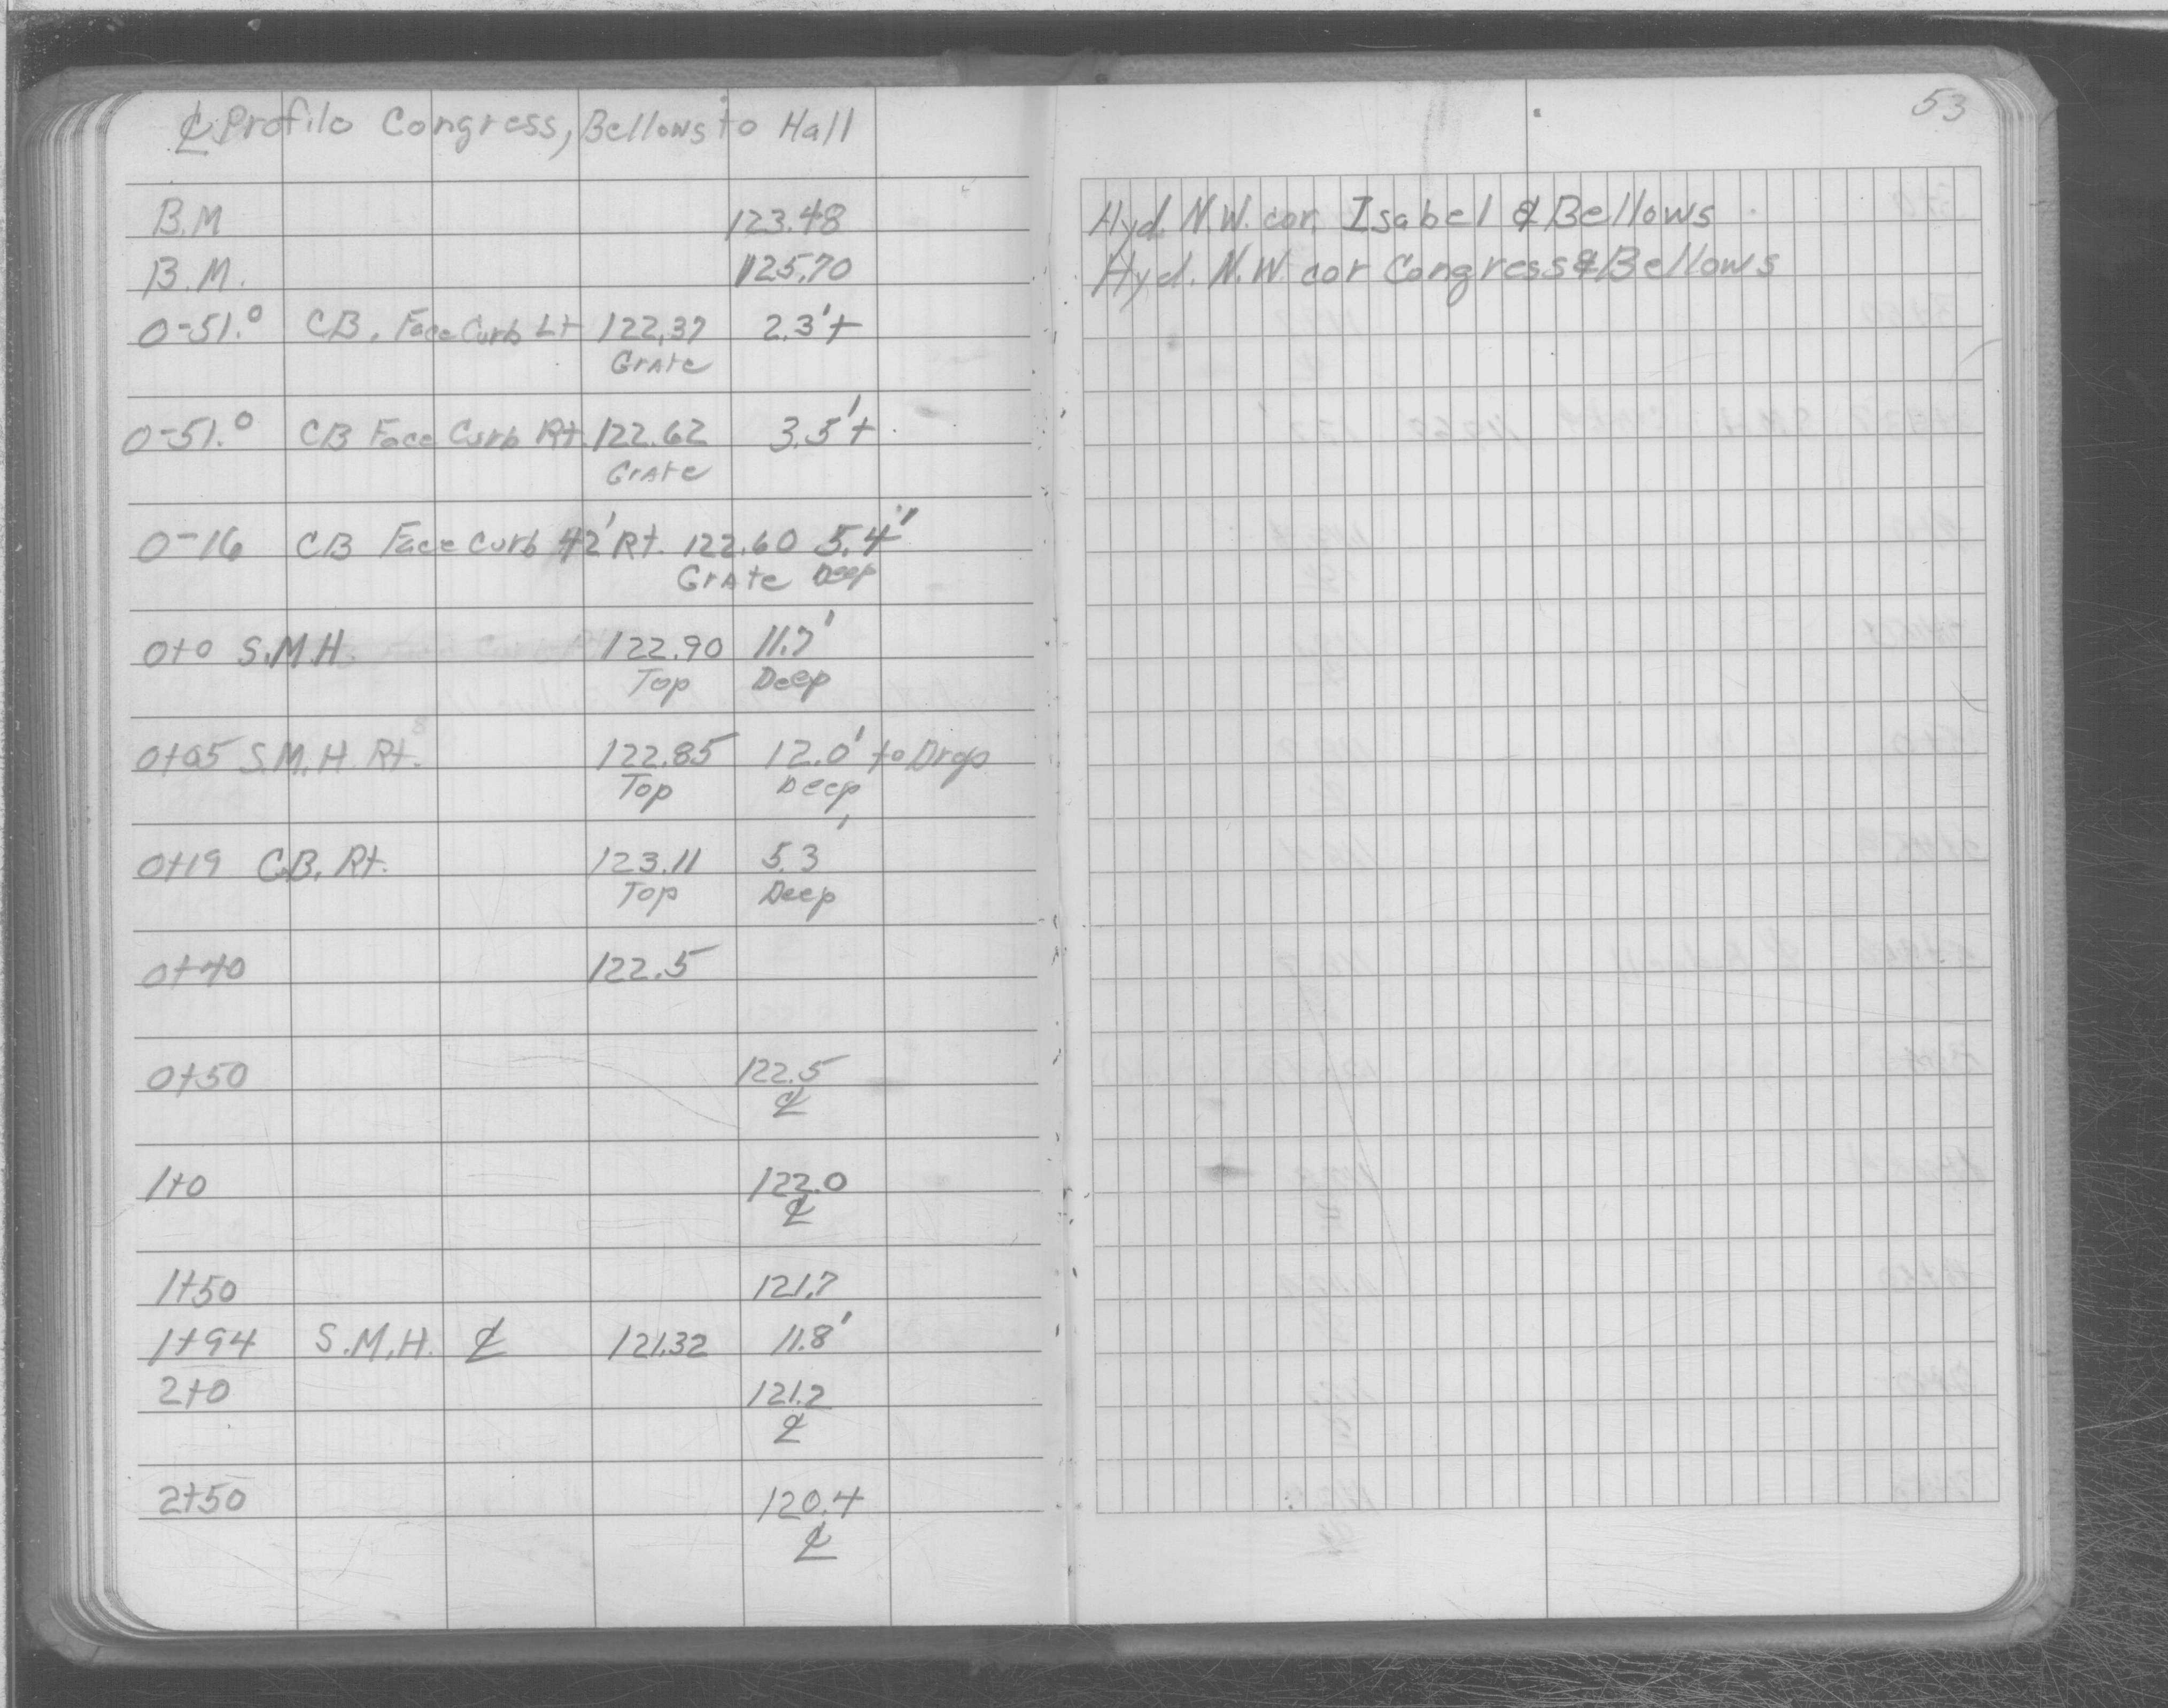 ℄ Profile Congress, Bellows to Hall
53
B.M 123.48 Hyd. N.W. cor. Isabel & Bellows
B.M. 125.70 Hyd. N.W. cor Congress & Bellows
0-51.0 CB. Face Curb Lt 122.37 2.3'±
Grate
0-51.0 CB Face Curb Rt. 122.62 3.5'±
Grate
0-16 CB Face Curb 42' Rt. 122.60 5.4'
Grate Deep
0+0 S.M.H. 122.90 11.7'
Top Deep
0+05 S.M.H. Rt. 122.85 12.0' to Drop
Top Deep
0+19 C.B. Rt. 123.11 5.3'
Top Deep
0+40 122.5
0+50 122.5
℄
1+0 122.0
℄
1+50 121.7
1+94 S.M.H. ℄ 121.32 11.8'
2+0 121.2
℄
2+50 120.4
℄